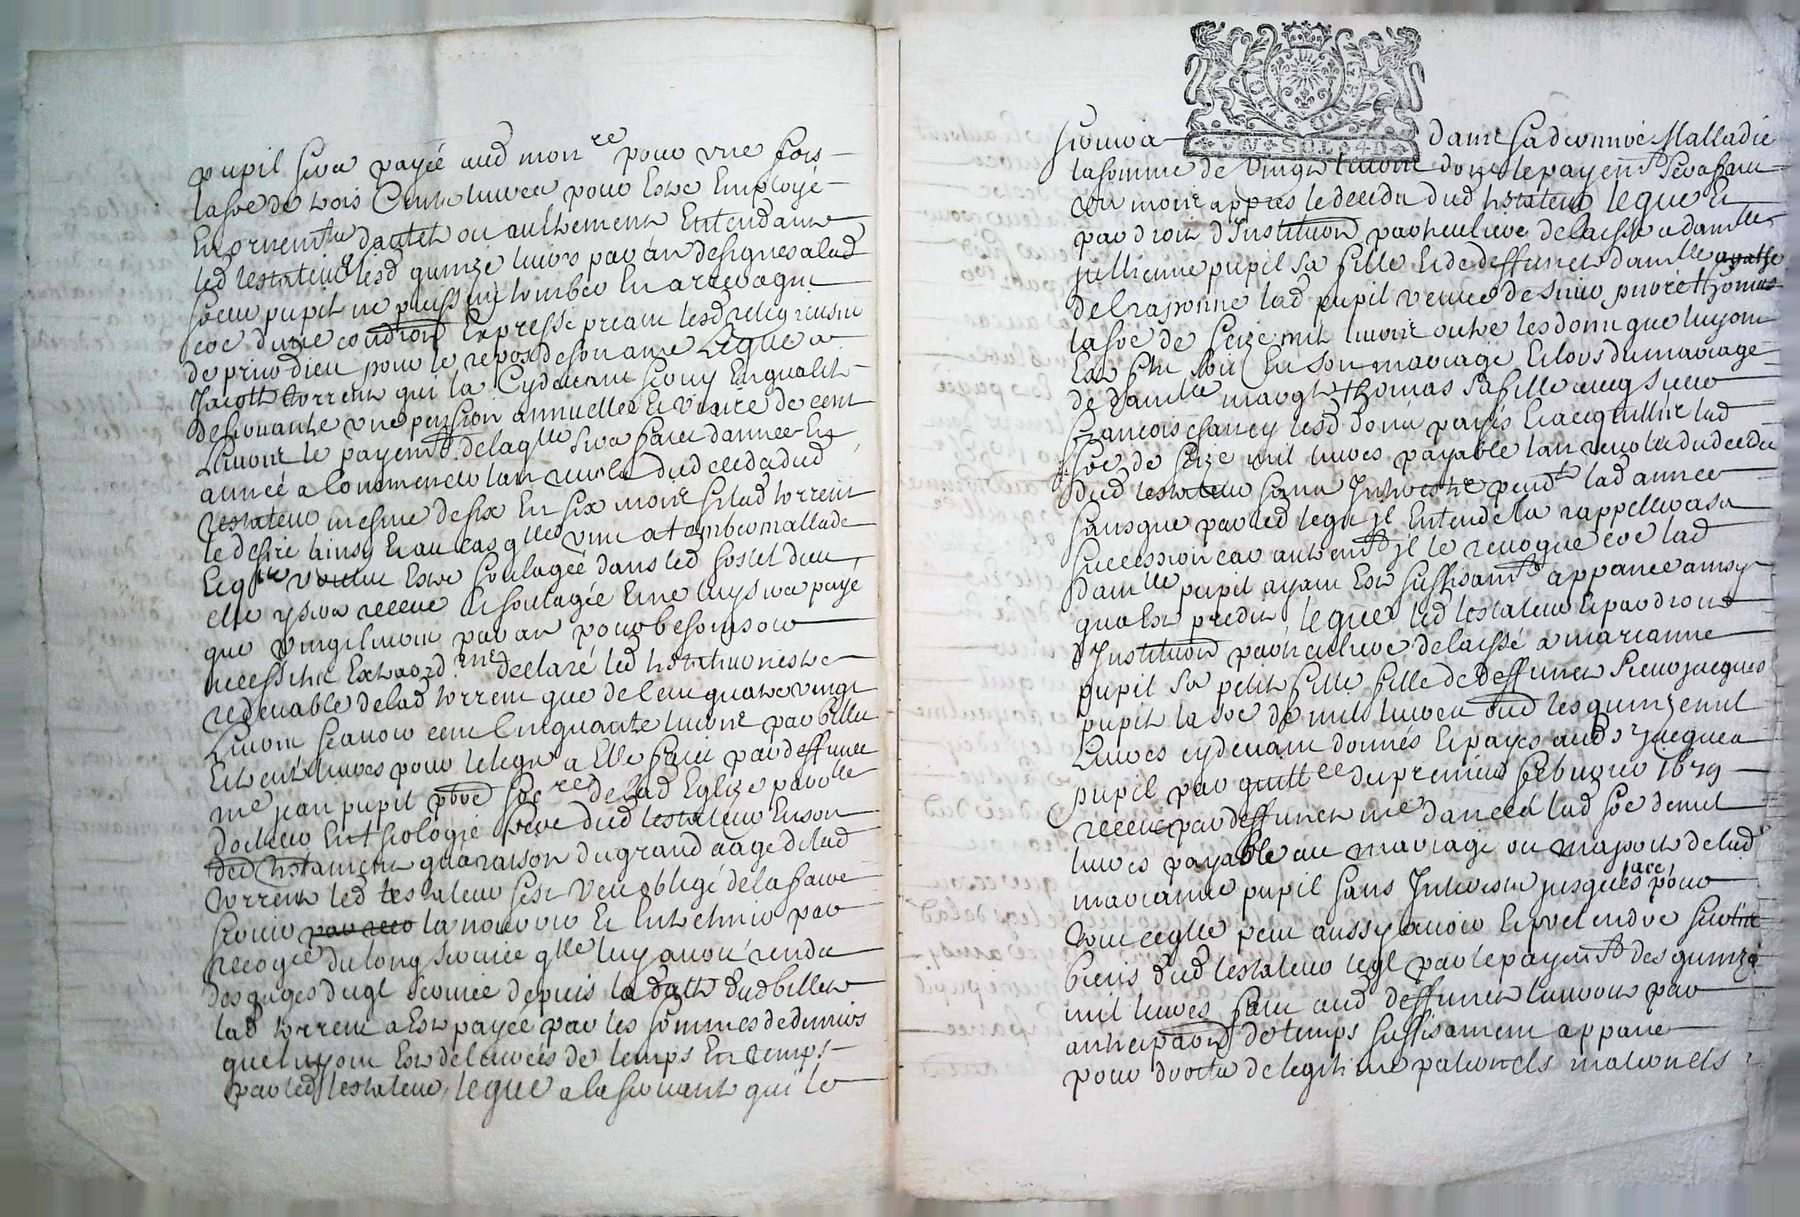 pupil sera payée aud mon re pour une fois
la soe de trois Cents livres pour Estre Employé
En ornemts dautel ou aultrement Entendant
led testateur lesd quinze livres par an designes a lad
soeur pupil ne puissent tomber En arrerages
coe dune coudion Expresse priant lesd religieuses
de prier dieu pour le repos de son ame Legue a
torrent qui la Cydevant servy En qualité
de servante une pension annuelle Et viagere de cent
Livres le payemt de laqlle sera faict dannee En
année a Commencer lan revolu du deceds dud
testateur mesme de six En six mois si lad torrent
le desire ainsy Et au cas qlle vint a tomber mallade
Et qlle voulut Estre soulagée dans led hostel dieu
elle y sera receue Et soulagée Et ne luy sera payé
que vingt livres par an pour besoins ou
necessités Extraord res declaré led testateur nestre
redevable de lad torrent que de Cent quatre vingt
Livres scavoir cent Cinquante livres par billet
Et trente livres pour le legat a Elle faict par deffunct
me jean pupil pbre de lad Eglize
docteur En theologie frere dud testateur En son
dud testament qua raison du grand aage de lad
torrent led testateur sest veu obligé de la faire
servir la nourrir Et Entretenir par
du long service qlle luy avoit rendu
des gages dugl service depuis la datte dud billet
lad torrent a Esté payée par les sommes de deniers
que luy ont Esté delivrées de temps En temps
par led testateur, legue a la servante qui le
servira dans sa derniere Malladie
la somme de vingt livres dont le payemt sera faict
un mois appres le deceds dud testateur legue Et
par droit dInstitution particuliere delaisse a damlle
jullienne pupil sa fille Et de deffuncte damlle agathe
lad pupil veuve de sieur pierre thomas
la soe de seize mil livres oultre les dons que luy ont
Esté faits En son mariage Et lors du mariage
de damlle margte thomas sa fille avecq sieur
francois chancy lesd dons payés Et acquittés lad
soe de seize mil livres payable lan revolu du deceds
dud testateur sans Interestz pendt lad année
sans que par led legat jl Entende la rappeller a sa
succession car autremt jl le revoque coe lad
damlle pupil ayant Esté suffisamt appanee ainsy
qua Esté predit legue led testateur Et par droit
dInstitution particuliere delaisse a marianne
pupil sa petite fille fille de deffunct sieur jacques
pupil la soe de mil livres oultre les quinze mil
Livres cydevant donnés Et payés aud sr jacques
pupil par quittce du premier febvrier 1679
receue par deffunct me lad soe de mil
livres payable au mariage ou majorité de lad
marianne pupil sans Interestz jusques lace pour
tout ce qlle peut aussy avoir Et pretendre sur les
biens dud testateur legl par le payemt des quinze
mil livres faict aud deffunct par
anticipation de temps suffisament appané
pour droits de legitime paternels maternels
UN SOL 4 D